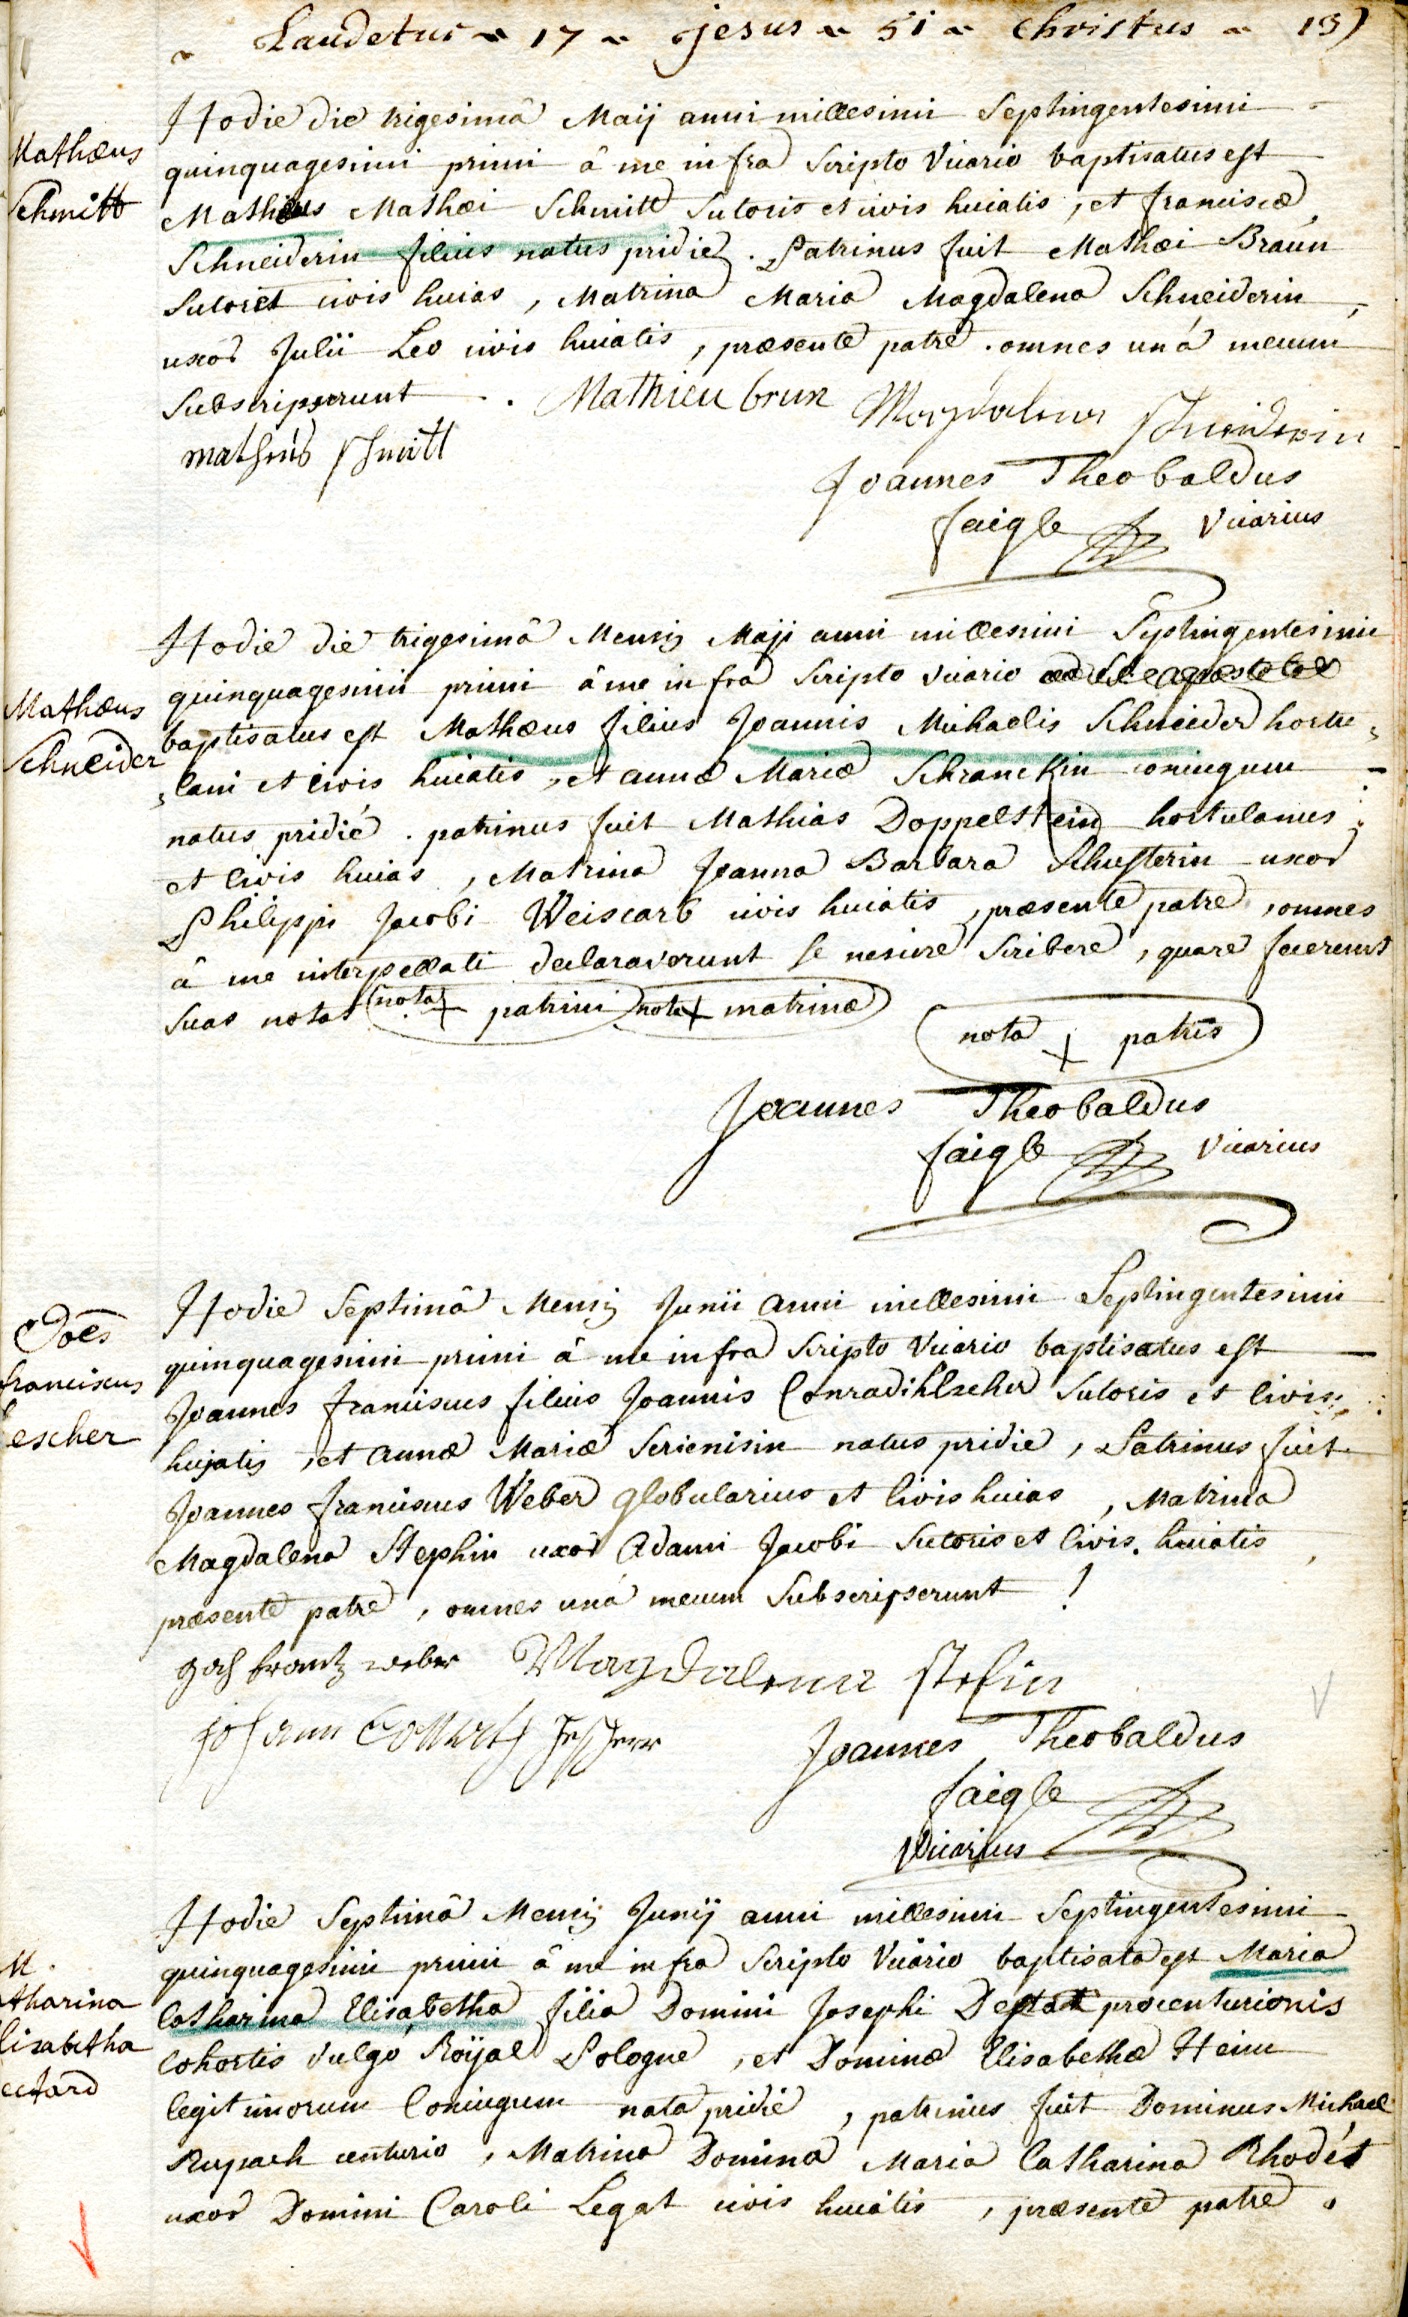 Laudetur 17 jesus 51 Christus 13)
Hodie die trigesimâ Maij anni millesimi Septingentesimi
Mathæus
quinquagesimi primi â me infra Scripto Vicario baptisatus est
Schmitt
Mathæus Mathæi Schmitt Sutoris et civis huiatis, et franciscæ
Schneiderin filius natus pridie. Patrinus fuit Mathæi Braun
Sutoret civis huias, Matrina Maria Magdalena Schneiderin,
uxor Julii Leo civis huiatis, præsente patre. omnes unà mecum
Subscripserunt. Mathieu brun Magdalena Schneiderin
matheus schmitt
Joannes Theobaldus
faigle Vicarius
Hodie die trigesimâ Mensis Maji anni millesimi Septingentesimi
quinquagesimi primi â me infra Scripto Vicario
Mathæus
baptisatus est Mathæus filius Joannis Michaelis Schneider hortu„
Schneider
„lani et civis huiatis, et annæ Mariæ Schranckin coniugum
natus pridié. patrinus fuit Mathias Doppelstein hortulanus
et Civis huias, Matrina Joanna Barbara Schusterin uxor
Philippi Jacobi Weiscarb civis huiatis, præsente patre, omnes
â me interpellati declaraverunt se nescire Scribere, quare fecerunt
Suas notas nota + patrini nota + matrinæ
nota + patris
Joannes Theobaldus
faigle Vicarius
Hodie Septimâ Mensis Junii anni millesimi Septingentesimi
Joēs
quinquagesimi primi â me infra Scripto Vicario baptisatus est
franciscus
Joannes franciscus filius Joannis Conradi Sutoris et Civis
escher
hujatis, et annæ Mariæ Serienisin natus pridie, Patrinus fuit
Joannes franciscus Weber globularius et Civis huias, Matrina
Magdalena Stephin uxor Adami Jacobi Sutoris et Civis. huiatis,
præsente patre, omnes unà mecum Subscripserunt!
frantz weber Magdalena stefin
johann
Joannes Theobaldus
faigle
Vicarius
Hodie Septimâ Mensis Junij anni millesimi Septingentesimi
M.
quinquagesimi primi â me infra Scripto Vicario baptisata est Maria
atharina
Catharina Elisabetha filia Domini Josephi procenturionis
lisabetha
Cohortis vulgò Roÿal Pologne, et Dominæ Elisabethæ Heim
legitimorum Coniugum nata pridié, patrinus fuit Dominus Michael
Rupach centurio, Matrina Domina Maria Catharina Rhodét
uxor Domini Caroli Legat civis huiatis, præsente patre.